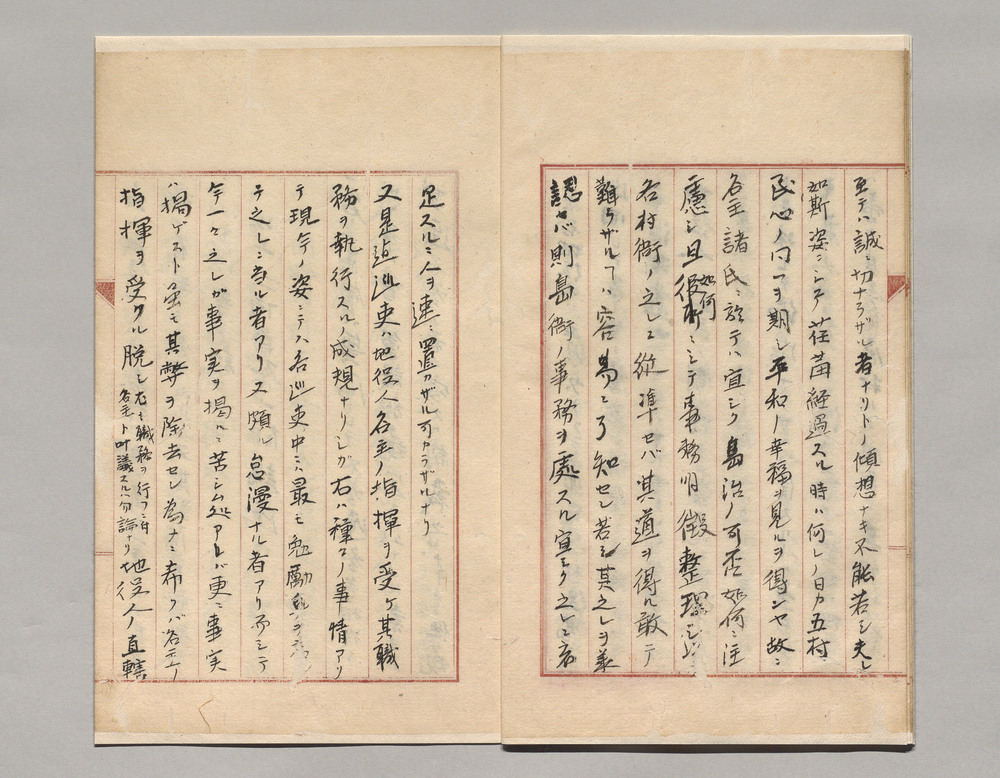 至テハ誠ニ切ナラザル者ナリトノ傾想ナキ不能若シ夫レ
如斯姿ニシテ荏苒経過スル時ハ何レノ日カ五村
民心ノ同一ヲ期シ平和ノ幸福ヲ見ルヲ得ンヤ故ニ
各主諸氏ニ於テハ宜シク島治ノ可否如何ニ注
慮シ且如何ニシテ事務明徴整理
各村衙ノ之レニ従準セバ其道ヲ得ル敢テ
難カラザルヿハ容易ニ了知セン若シ其之レヲ
認セバ則島衙ノ事務ヲ處スル宜シク之レニ
足スルニ人ヲ速ニ置カザル可カラザルナリ
又是迄巡吏ハ地役人名主ノ指揮ヲ受ケ其職
務ヲ執行スルノ成規ナリシガ右ハ種々ノ事情アリ
テ現今ノ姿ニテハ各巡吏中ニハ最モ勉励
テ之レニ当ル者アリ又頗ル怠慢ナル者アリ而シテ
今一々之レガ事実ヲ掲ルニ苦シム処アレバ更ニ事実
ハ掲ゲズト虽モ其弊ヲ除去セン為ナニ希クバ各
指揮ヲ受クル脱シ右ニ職務ヲ行フニ付名主ト叶議スルハ勿論ナリ地役人ノ直轄